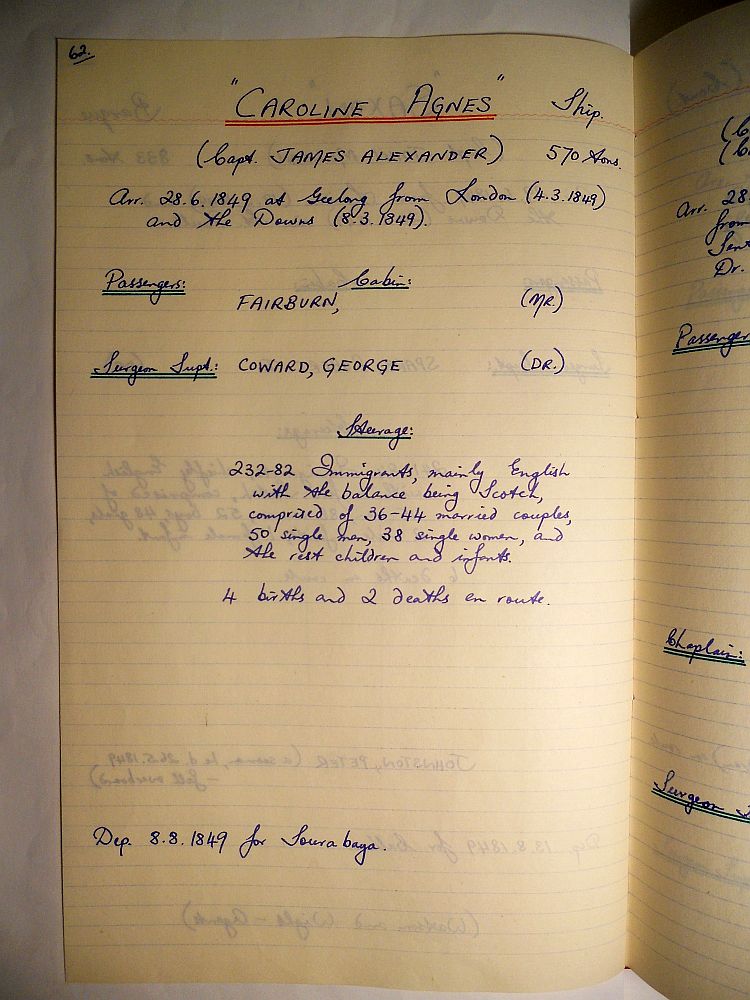 62.
"CAROLINE AGNES" Ship.
(Capt. JAMES ALEXANDER) 570 tons.
Arr. 28.6.1849 at Geelong from London (4.3.1849)
and the Downs (8.3.1849).
Passengers: Cabin:
FAIRBURN, (MR.)
Surgeon Supt.: COWARD, GEORGE (DR.)
Steerage:
232-82 Immigrants, mainly English
with the balance being Scotch,
comprised of 36-44 married couples,
50 single men, 38 single women, and
the rest children and infants.
4 births and 2 deaths en route.
Dep. 8.8.1849 for Sourabaya.
Arr. 28.
from
Dr.
Passenger
Chaplain:
Surgeon